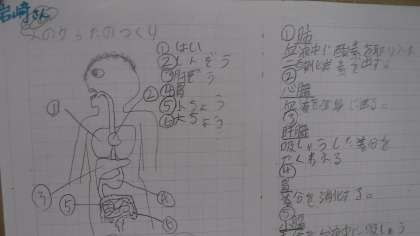 岩崎さん
人のからだのつくり
①はい
②しんぞう
③肝ぞう
④胃
⑤小ちょう
⑥大ちょう
①
②
③
④
⑤
⑥
①肺
血液中に酸素を取り入れ
二酸化炭素を出す。
②
心臓
血液を全身に送る。
③
肝臓
吸しゅうした養分を
たくわえる
④
胃
養分を消化する。
⑤
小腸